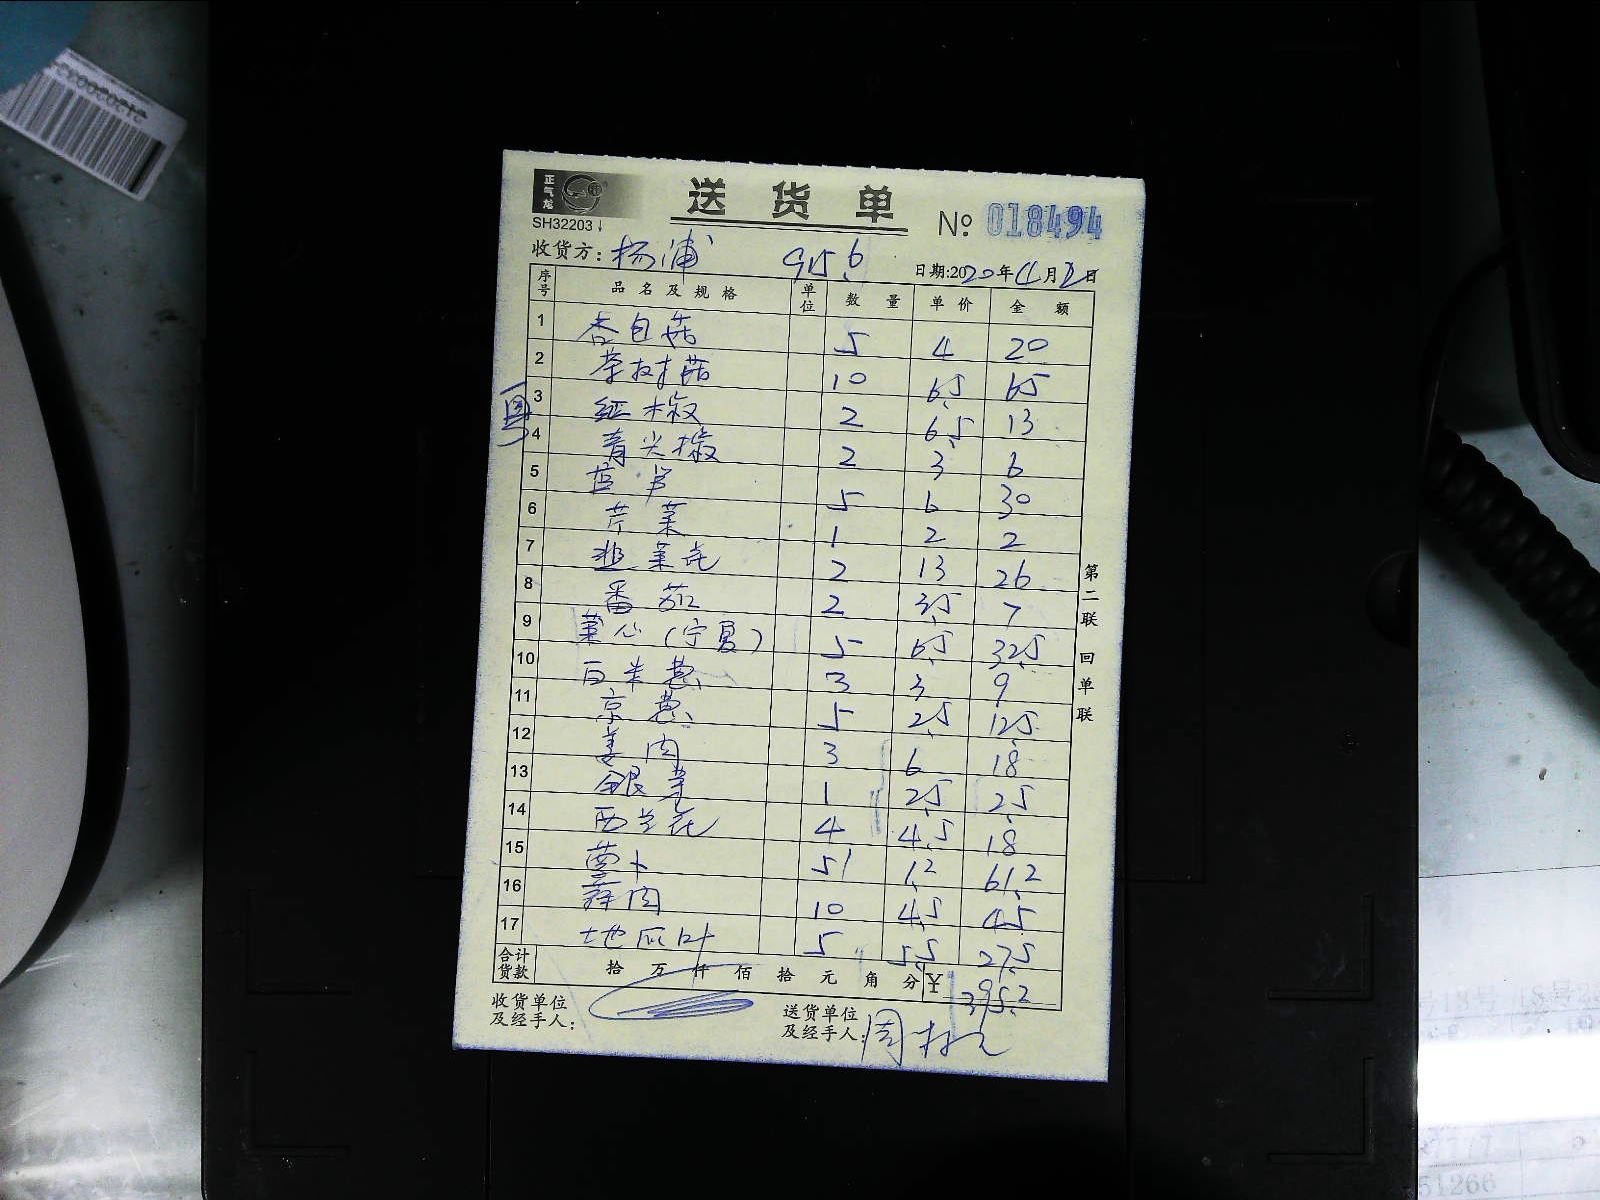 正气龙
送货单
SH32203
№ 018494
收货方: 杨浦 915.6
日期:2020年11月2日
序号 品名及规格 单位 数量 单价 金额
1 杏包菇 5 4 20
2 茶树菇 10 6.5 65
3 红椒 2 6.5 13
4 青尖椒 2 3 6
5 6 30
6 芹菜 1 2 2
7 韭菜花 2 13 26
8 番茄 2 3.5 7
9 菜心(宁夏) 5 6.5 32.5
10 百米葱 3 3 9
11 京葱 5 2.5 12.5
12 姜肉 3 6 18
13 银芽 1 2.5 2.5
14 西兰花 4 4.5 18
15 萝卜 51 1.2 61.2
16 蒜肉 10 4.5 45
17 地瓜叶 5 5.5 27.5
合计货款 拾 万 仟 佰 拾 元 角 分 ¥ 395.2
收货单位及经手人:
送货单位及经手人: 周
第二联 回单联